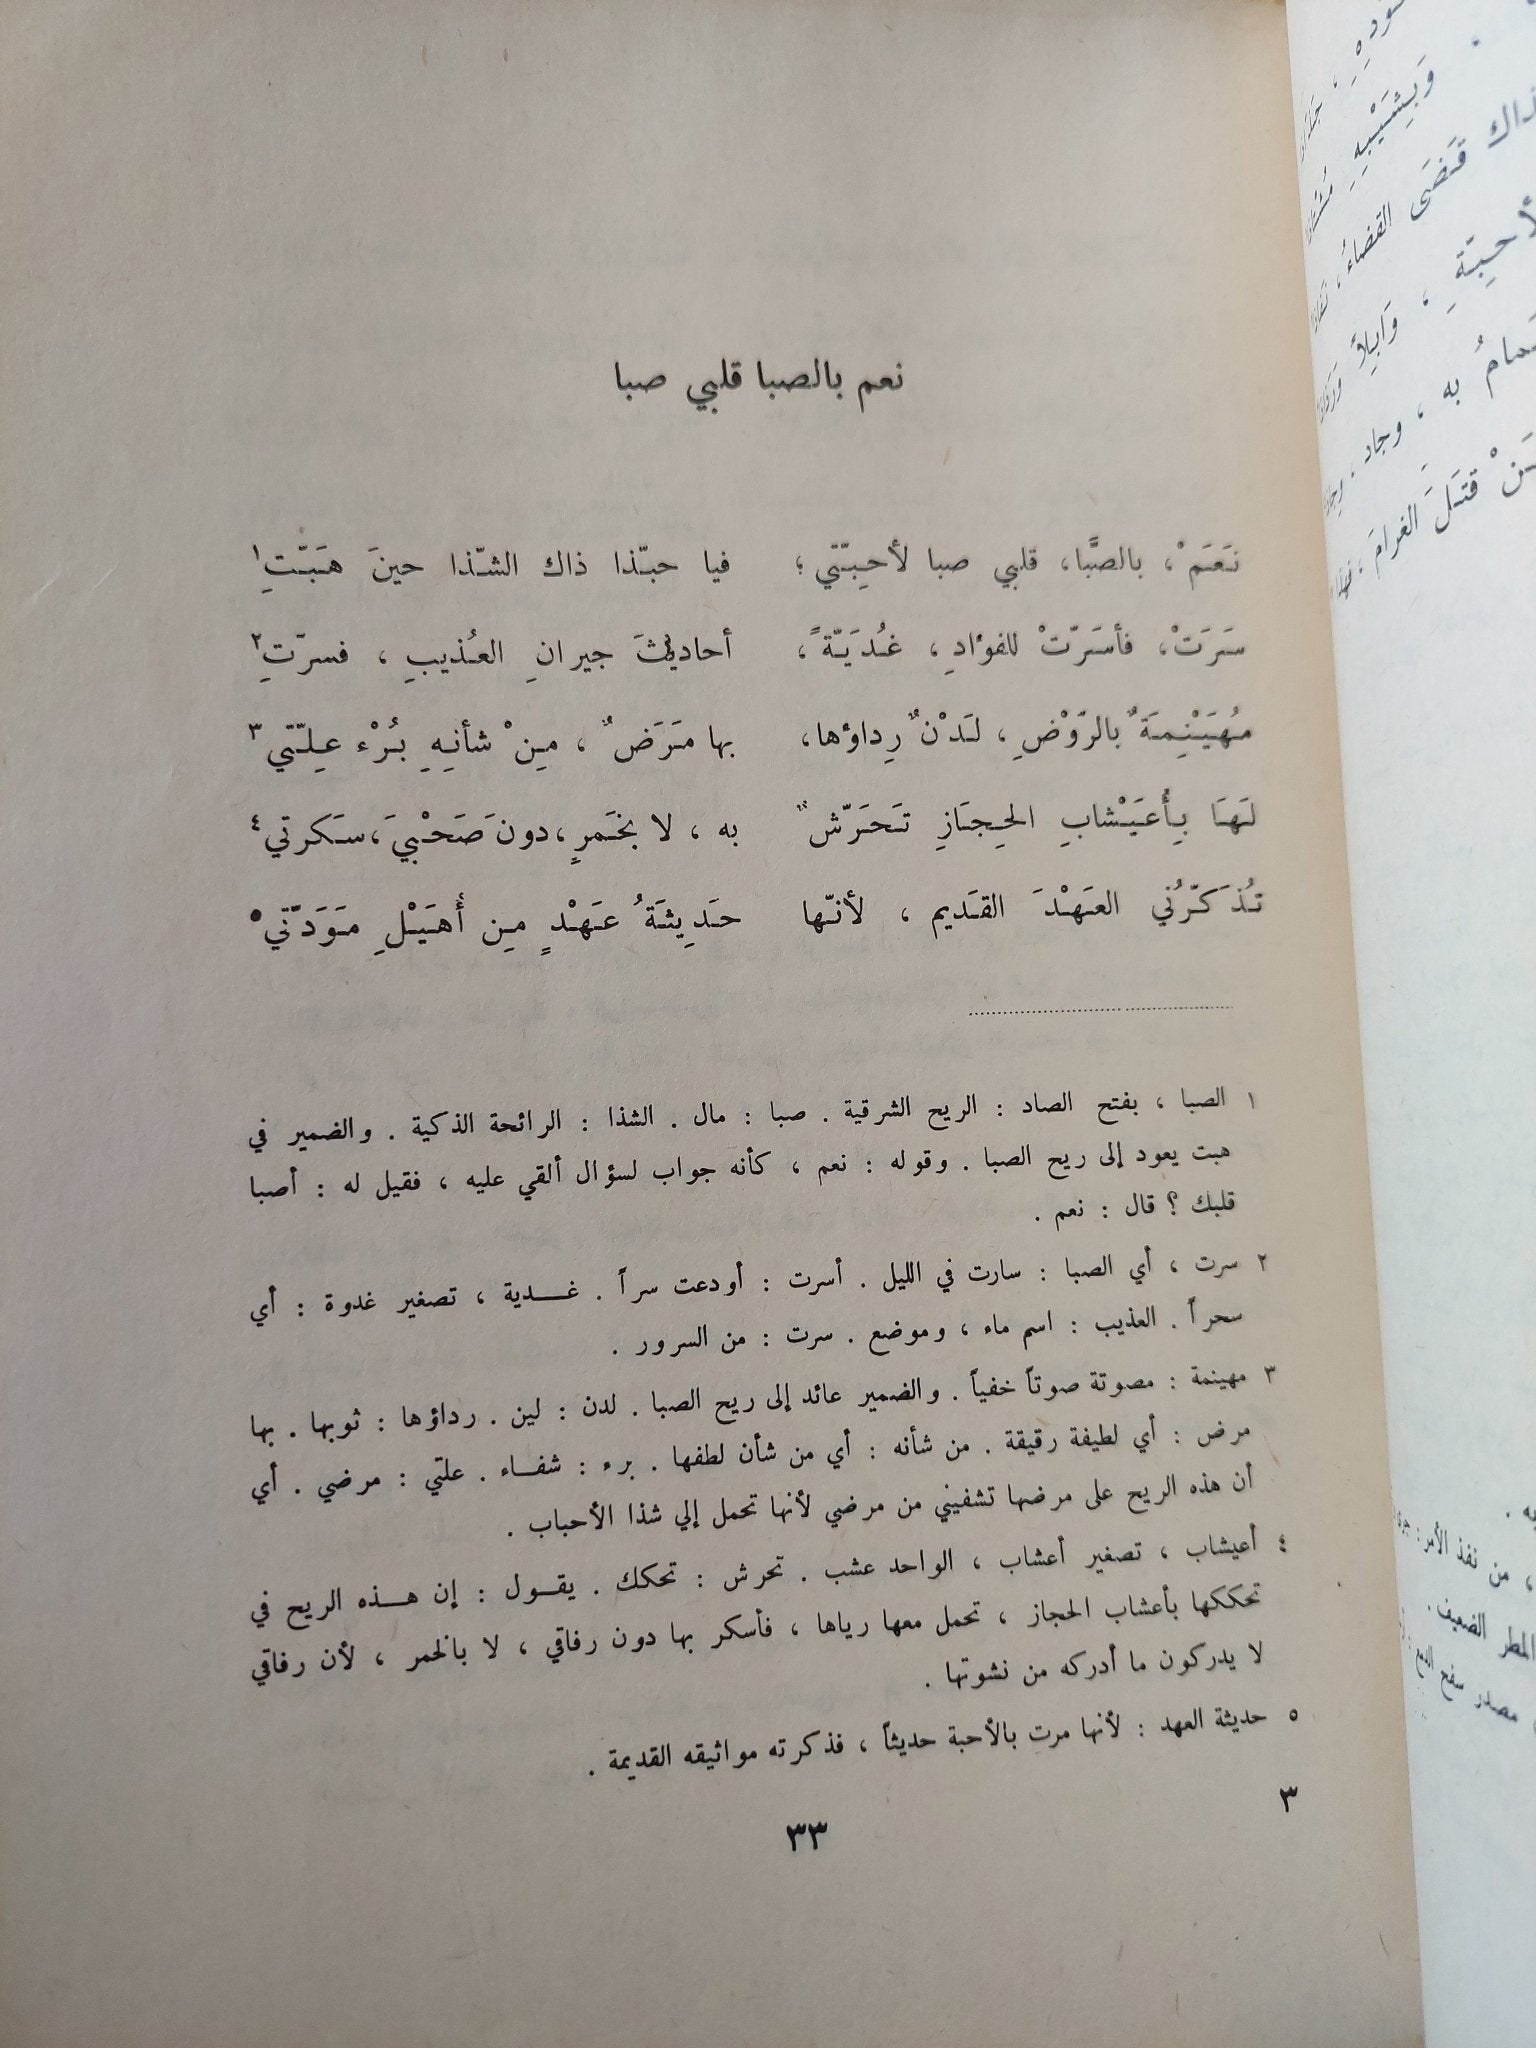 نعم بالصبا قلبي صبا
نَعَمْ ، بالصَّبَا، قلبي صبا لأحِبّتي ؛ فيا حبّذا ذاك الشّذا حينَ هَبّتِ١
سَرَتْ، فأسَرّتْ للفؤادِ ، غُدَيّةً ، أحاديثَ جيرانِ العُذيبِ ، فسرّتِ٢
مُهَيْنِمَةٌ بالرّوْضِ ، لَدْنٌ رِداؤها، بها مَرَضٌ ، مِنْ شأنِهِ بُرْء عِلّتي٣
لَهَا بِأُعَيْشابِ الحِجَازِ تَحَرّشٌ به ، لا بخَمرٍ ، دونَ صَحْبيَ ، سَكرتي٤
تُذَكّرُني العَهْدَ القَديم ، لأنّها حَدِيثَةُ عَهْدٍ مِن أُهَيْلِ مَوَدّتي٥
١ الصبا ، بفتح الصاد : الريح الشرقية . صبا : مال . الشذا : الرائحة الذكية . والضمير في
هبت يعود إلى ريح الصبا . وقوله : نعم ، كأنه جواب لسؤال ألقي عليه ، فقيل له : أصبا
قلبك ؟ قال : نعم .
٢ سرت ، أي الصبا : سارت في الليل . أسرت : أودعت سراً . غدية ، تصغير غدوة : أي
سحراً . العذيب : اسم ماء ، وموضع . سرت : من السرور .
٣ مهينمة : مصوتة صوتاً خفياً . والضمير عائد إلى ريح الصبا . لدن : لين . رداؤها : ثوبها . بها
مرض : أي لطيفة رقيقة . من شأنه : أي من شأن لطفها . برء : شفاء . علتي : مرضي . أي
أن هذه الريح على مرضها تشفيني من مرضي لأنها تحمل إلي شذا الأحباب .
٤ أعيشاب ، تصغير أعشاب ، الواحد عشب . تحرش : تحكك . يقول : إن هذه الريح في
تحككها بأعشاب الحجاز ، تحمل معها رياها ، فأسكر بها دون رفاقي ، لا بالخمر ، لأن رفاقي
لا يدركون ما أدركه من نشوتها .
٥ حديثة العهد : لأنها مرت بالأحبة حديثاً ، فذكرته مواثيقه القديمة .
٣
٣٣
وَبِشَيْبِهِ
ذاك قَضَى القضاءُ ،
، وَابِلاً
به ، وجاد .
قتَلَ الغرامَ ،
، من نفذ الأمر :
المطر الضعيف .
مصدر سفح الدمع